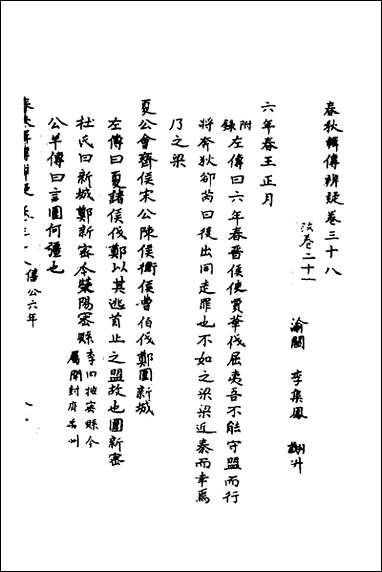 春秋輯傳辨疑卷三十八
法卷二十一
渝關 李集鳳 翽升
六年春王正月
附錄左傳曰六年春晉侯使賈華伐屈夷吾不能守盟而行
將奔狄郤芮曰後出同走罪也不如之梁梁近秦而幸焉
乃之梁
夏公會齊侯宋公陳侯衛侯曹伯伐鄭圍新城
左傳曰夏諸侯伐鄭以其逃首止之盟故也圍新密
杜氏曰新城鄭新密今滎陽密縣李曰按密縣今屬開封府禹州
公羊傳曰言圍何彊也
春秋輯傳辨疑卷三十八 僖公六年